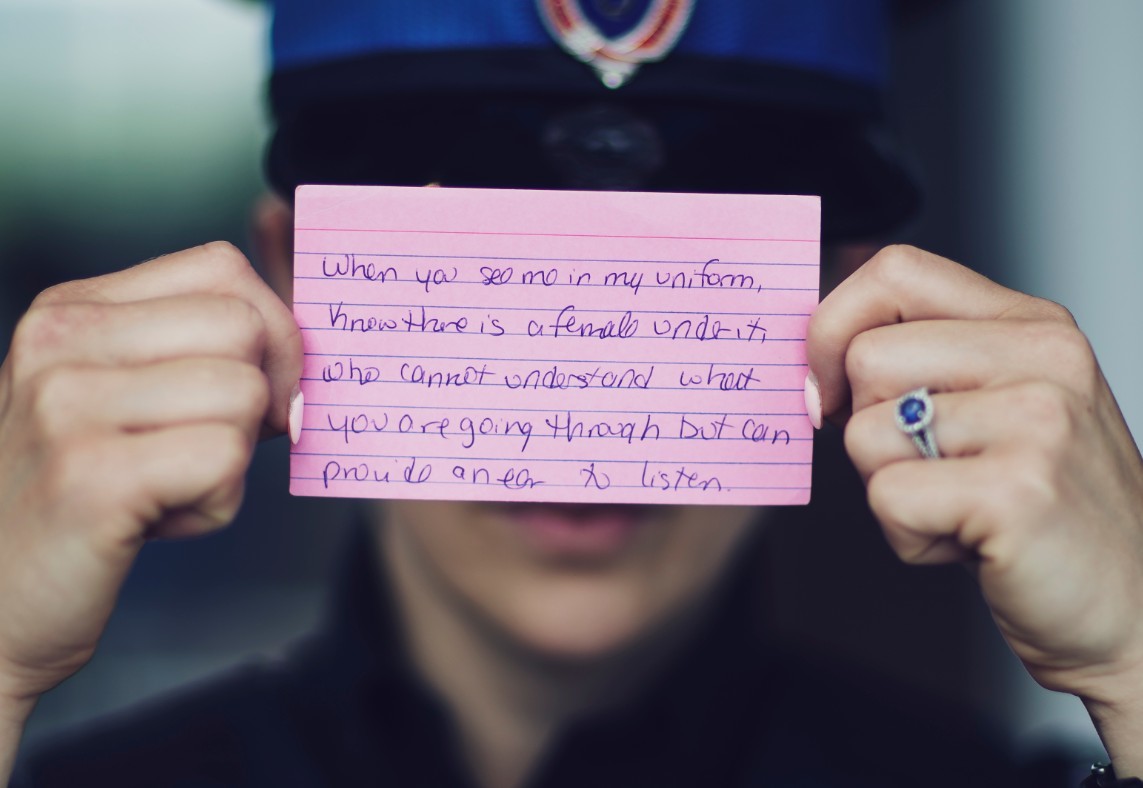 When you see me in my uniform,
Know there is a female under it,
who cannot understand what
you are going through but can
provide an ear to listen.